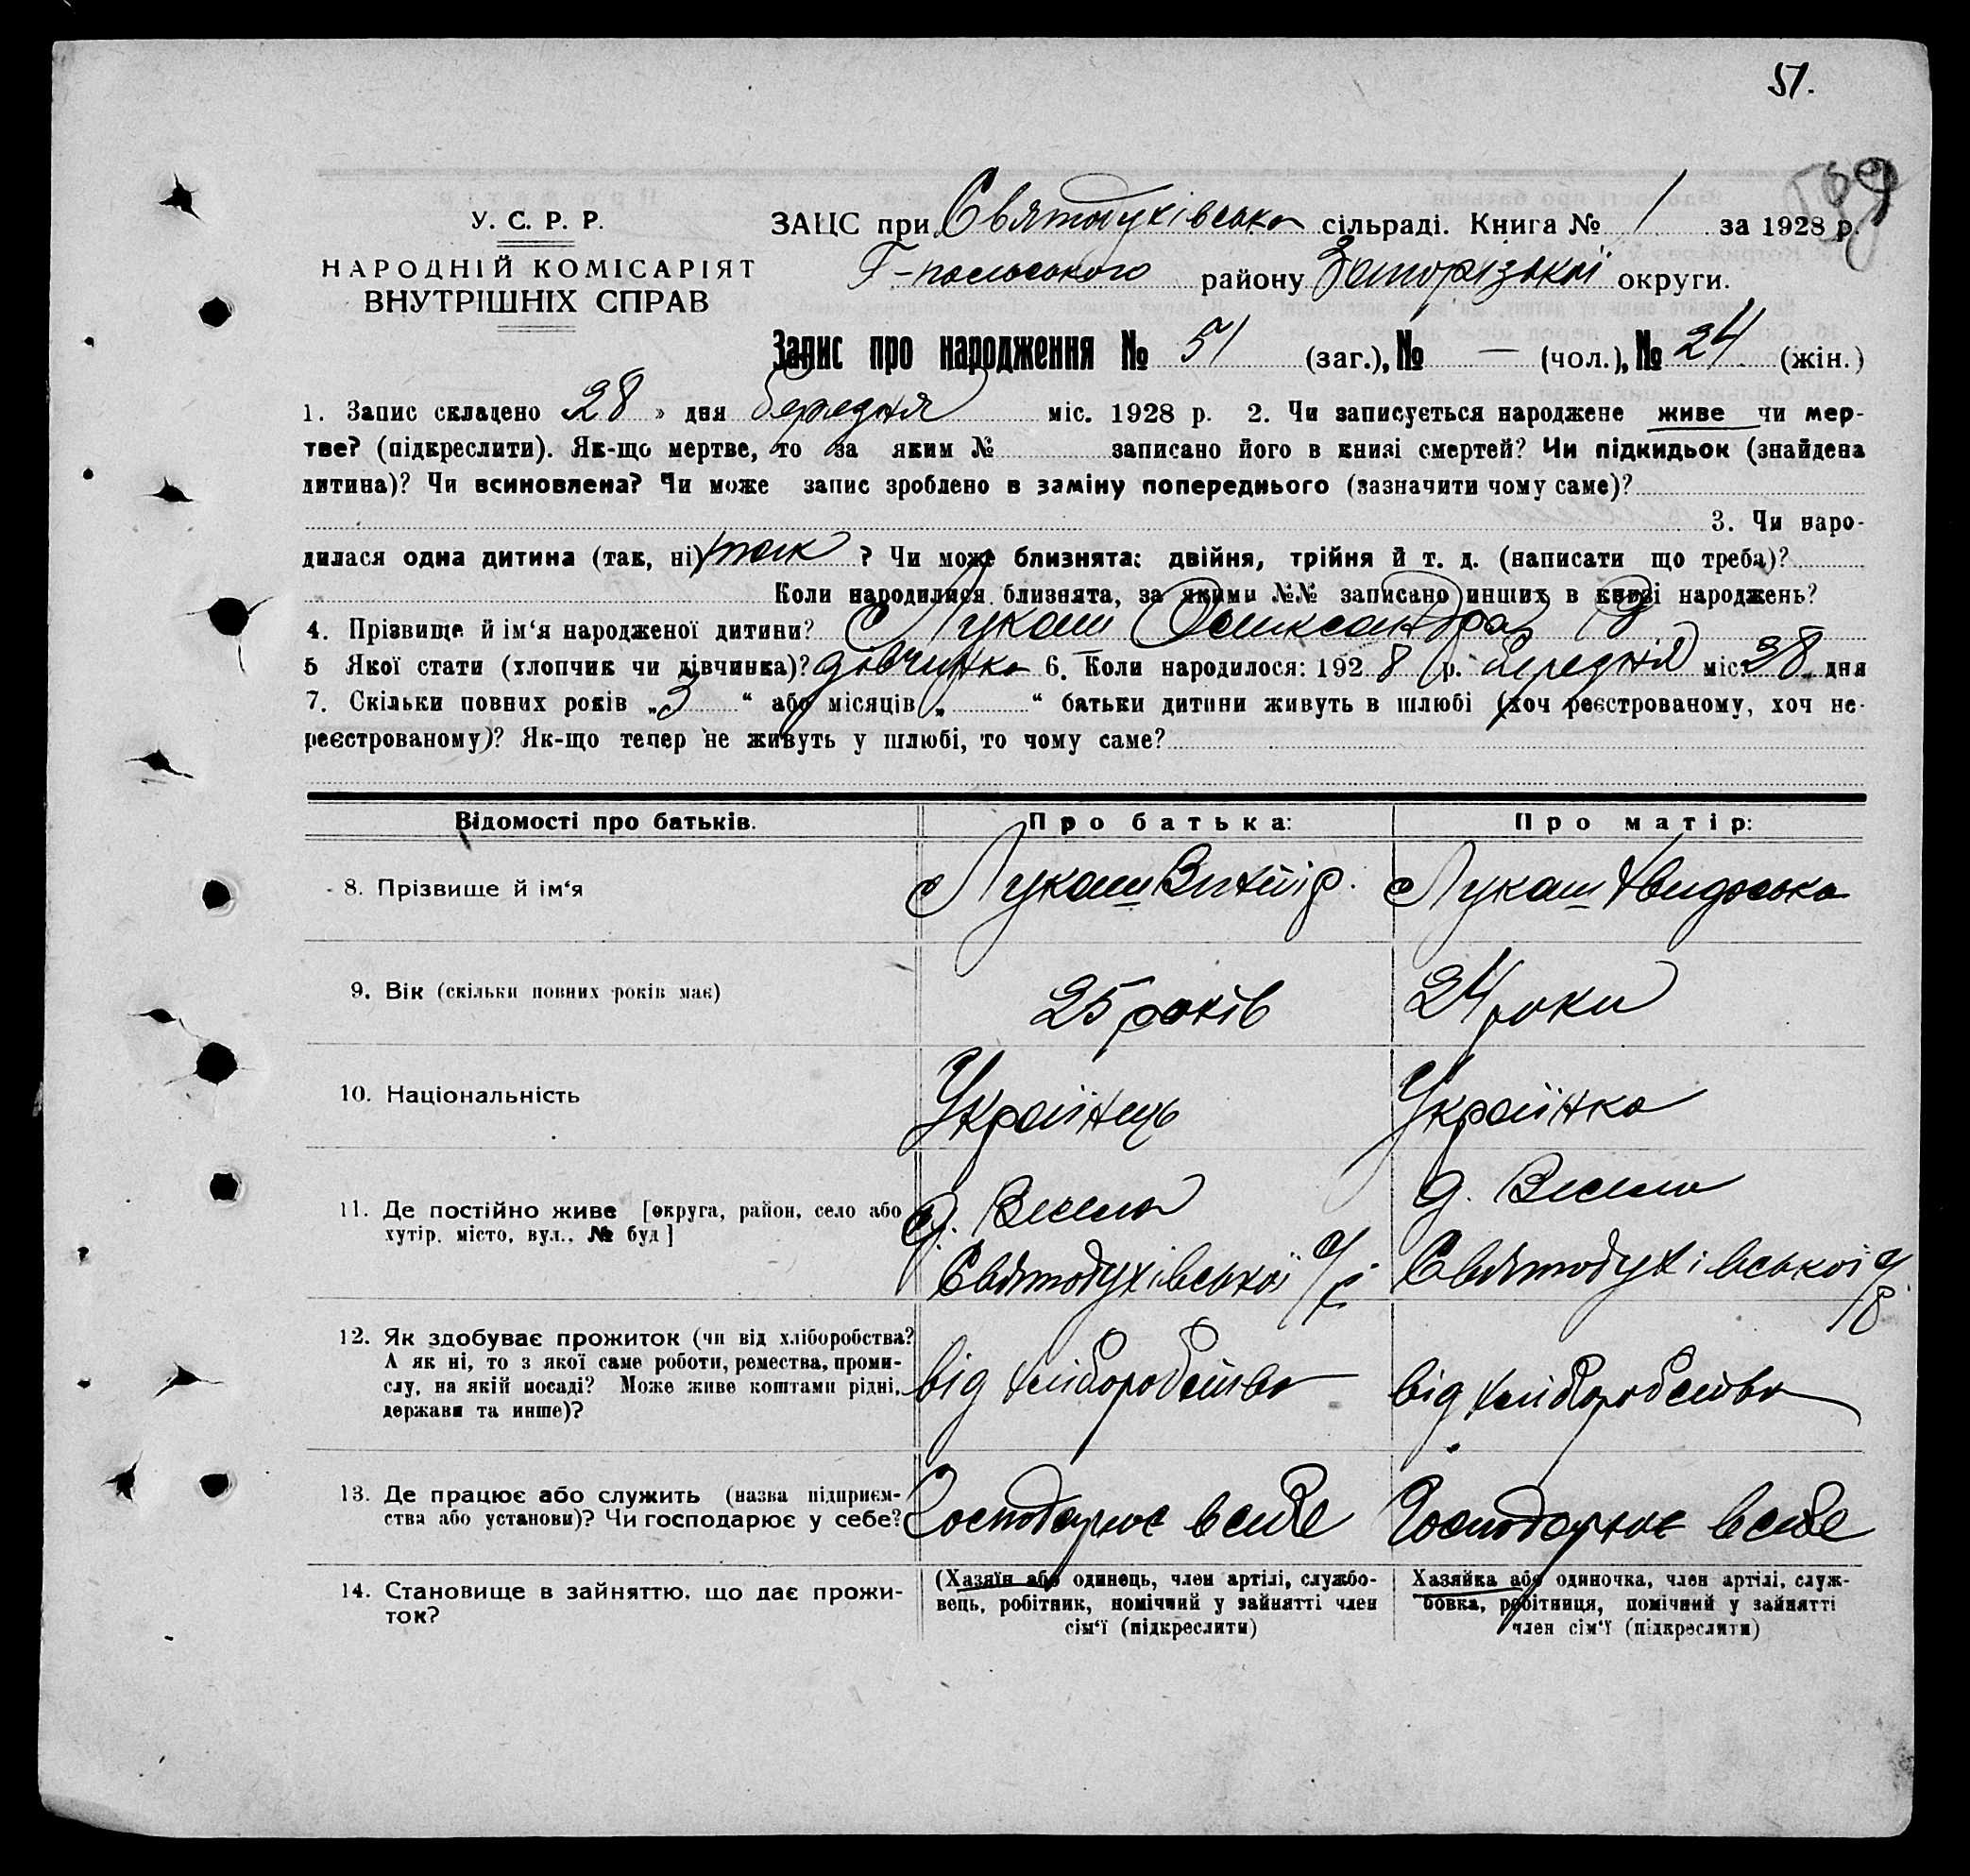 51.
У. С. Р. Р.
НАРОДНІЙ КОМІСАРІЯТ
ВНУТРІШНІХ СПРАВ
ЗАЦС при Святодухівська сільраді. Книга № 1 за 1928 р.
Г-польського району Запорізької округи.
Запис про народження № 51 (заг.), № — (чол.), № 24 (жін.)
1. Запис складено 28 » дня Березня міс. 1928 р. 2. Чи записується народжене живе чи мер-
тве? (підкреслити). Як-що мертве, то за яким № записано його в книзі смертей? Чи підкидьок (знайдена
дитина)? Чи всиновлена? Чи може запис зроблено в заміну попереднього (зазначити чому саме)?
3. Чи наро-
дилася одна дитина (так, ні) так ? Чи може близнята: двійня, трійня й т. д. (написати що треба)?
Коли народилися близнята, за якими №№ записано инших в книзі народжень?
4. Прізвище й ім‘я народженої дитини? Лукаш Олександра
5 Якої стати (хлопчик чи дівчинка)? дівчинка 6. Коли народилося: 192 8 р. Березня міс. 28 дня
7. Скільки повних років „ 3 “ або місяців „ “ батьки дитини живуть в шлюбі (хоч реєстрованому, хоч не-
реєстрованому)? Як-що тепер не живуть у шлюбі, то чому саме?
Відомості про батьків. Про батька: Про матір:
8. Прізвище й ім‘я Лукаш Лукаш
9. Вік (скільки повних років має) 25 років 24 роки
10. Національність Українець Українка
11. Де постійно живе [округа, район, село або д. Весела д. Весела
хутір, місто, вул., № буд] Святодухівської с/р Святодухівської с/р
12. Як здобуває прожиток (чи від хліборобства? від хліборобства від хліборобства
А як ні, то з якої саме роботи, ремества, проми-
слу, на якій посаді? Може живе коштами рідні,
держави та инше)?
13. Де працює або служить (назва підприєм- Господарює в себе Господарює в себе
ства або установи)? Чи господарює у себе?
14. Становище в зайняттю, що дає прожи- (Хазяїн або одинець, член артілі, службо- Хазяйка або одиночка, член артілі, служ-
ток? вець, робітник, помічний у зайнятті член бовка, робітниця, помічний у зайнятті
сім‘ї (підкреслити) член сім‘ї (підкреслити)